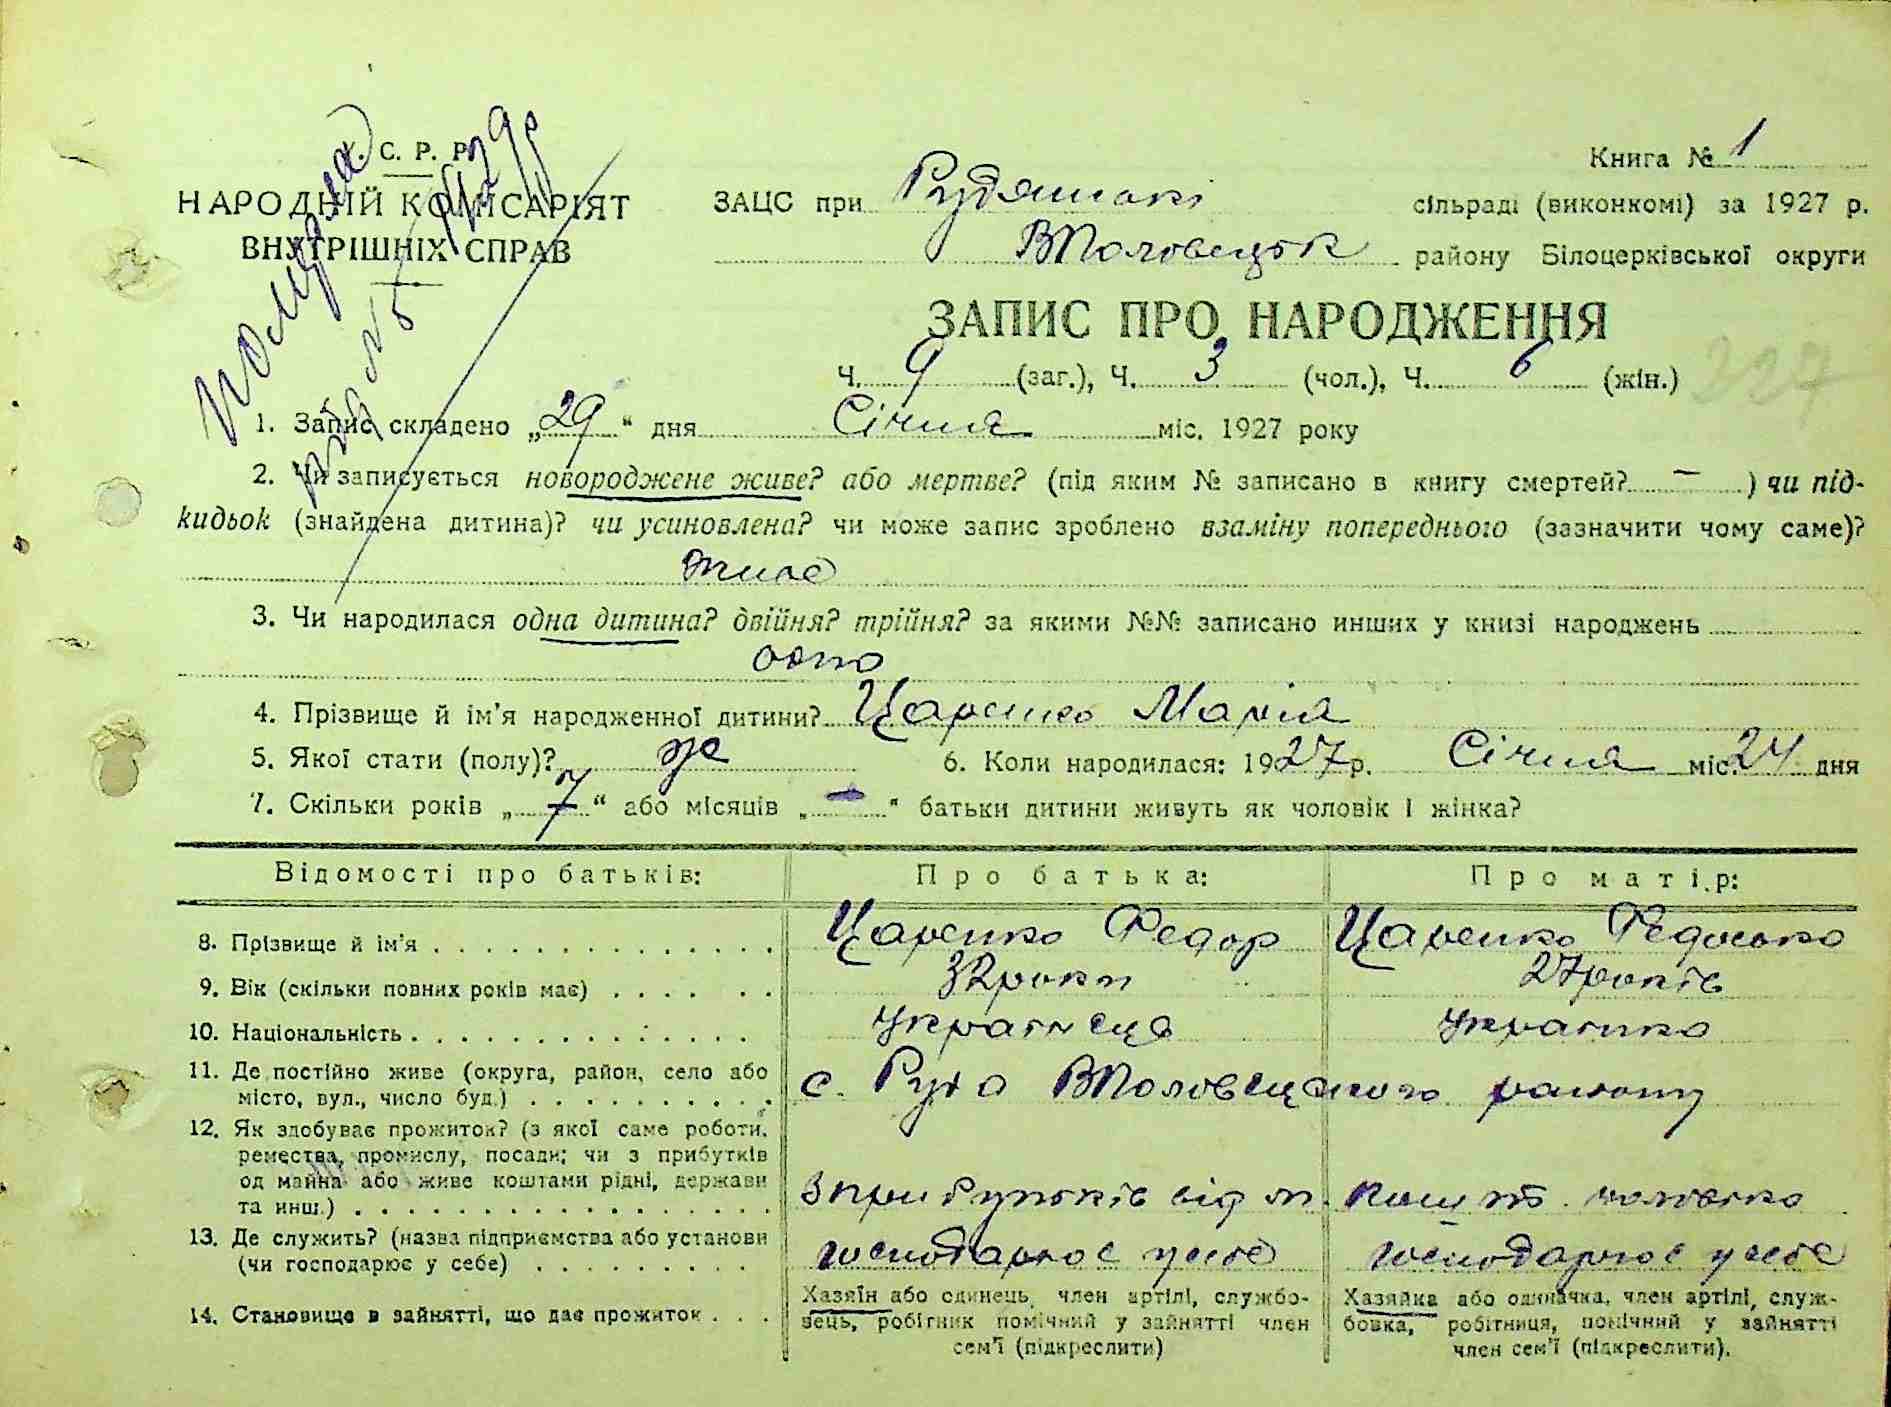 С. Р. Р.
НАРОДНІЙ КОМІСАРІЯТ
ВНУТРІШНІХ СПРАВ
Книга № 1
ЗАЦС при Рудянські сільраді (виконкомі) за 1927 р.
ВПоловецьк району Білоцерківської округи
ЗАПИС ПРО НАРОДЖЕННЯ
Ч. 9 (заг.), Ч. 3 (чол.), Ч. 6 (жін.)
227
1. Запис складено „29“ дня Січня міс. 1927 року
2. Чи записується новороджене живе? або мертве? (під яким № записано в книгу смертей? — ) чи під-
кидьок (знайдена дитина)? чи усиновлена? чи може запис зроблено взаміну попереднього (зазначити чому саме)?
живе
3. Чи народилася одна дитина? двійня? трійня? за якими №№ записано инших у книзі народжень
одна
4. Прізвище й ім'я народженної дитини? Царенко Марія
5. Якої стати (полу)? ж 6. Коли народилася: 1927 р. Січня міс. 24 дня
7. Скільки років „7“ або місяців „—“ батьки дитини живуть як чоловік і жінка?
Відомості про батьків: Про батька: Про матір:
8. Прізвище й ім'я Царенко Федор Царенко Федоська
9. Вік (скільки повних років має) 32 роки 27 років
10. Національність українець українка
11. Де постійно живе (округа, район, село або
місто, вул., число буд.) с. Руда ВПоловецького району
12. Як здобуває прожиток? (з якої саме роботи,
ремества, промислу, посади; чи з прибутків
од майна або живе коштами рідні, держави
та инш.) З прибутків від м. кошт. чоловіка
13. Де служить? (назва підприємства або установи
(чи господарює у себе) господарює у себе господарює у себе
14. Становище в зайнятті, що дає прожиток
Хазяїн або одинець, член артілі, службо-
вець, робітник помічний у зайнятті член
сем'ї (підкреслити)
Хазяйка або одиначка, член артілі, служ-
бовка, робітниця, помічний у зайнятті
член сем'ї (підкреслити).